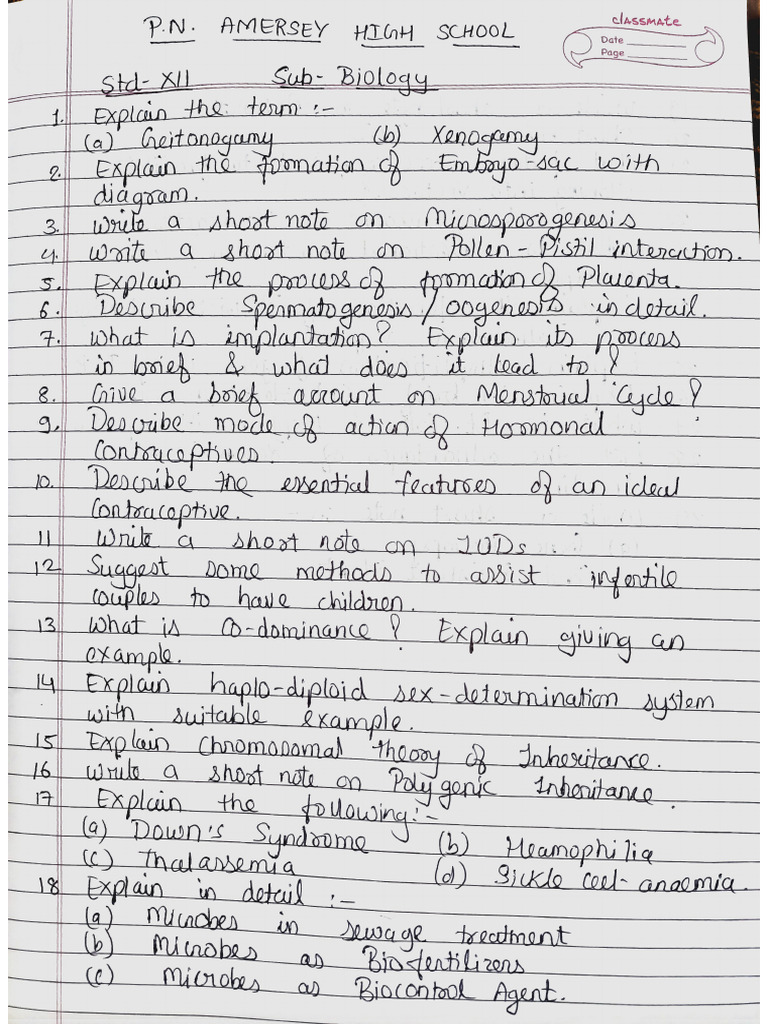 P.N. AMERSEY HIGH SCHOOL
classmate
Date
Page
Std- XII Sub- Biology
1. Explain the term :-
(a) Geitonogamy (b) Xenogamy
2. Explain the formation of Embryo-sac with
diagram.
3. Write a short note on Microsporogenesis
4. Write a short note on Pollen-Pistil interaction.
5. Explain the process of formation of Placenta.
6. Describe Spermatogenesis/oogenesis in detail.
7. What is implantation? Explain its process
in brief & what does it lead to?
8. Give a brief account on Menstrual Cycle?
9. Describe mode of action of Hormonal
Contraceptives.
10. Describe the essential features of an ideal
Contraceptive.
11 Write a short note on IUDs.
12 Suggest some methods to assist infertile
couples to have children.
13 What is Co-dominance? Explain giving an
example.
14 Explain haplo-diploid sex-determination system
with suitable example.
15 Explain Chromosomal Theory of Inheritance.
16 Write a short note on Polygenic Inheritance.
17 Explain the following:-
(a) Down's Syndrome (b) Heamophilia
(c) Thalassemia (d) Sickle cell-anaemia.
18 Explain in detail :-
(a) Microbes in sewage treatment
(b) Microbes as Biofertilizers
(c) Microbes as Biocontrol Agent.